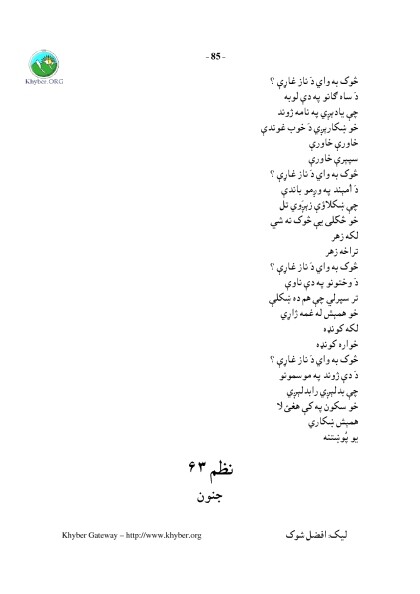 - 85 -
Khyber.ORG
څوک به وای دَ ناز غاړې ؟
دَ ساه ګانو په دې لوبه
چې یادېږي په نامه ژوند
خو ښکارېږي دَ خوب غوندې
خاورې خاورې
سپېرې خاورې
څوک به وای دَ ناز غاړې ؟
دَ اُمېند په ورمو باندې
چې ښکلاؤې زېږَوي تل
خو څګلی یې څوک نه شي
لکه زهر
تراخه زهر
څوک به وای دَ ناز غاړې ؟
دَ وختونو په دې ناوې
تر سپرلي چې هم ده ښکلې
خو همېش له غمه ژاړي
لکه کونډه
خواره کونډه
څوک به وای دَ ناز غاړې ؟
دَ دې ژوند په موسمونو
چې بدلېږي رابدلېږي
خو سکون په کې هغئ لا
همېش ښکاري
یو پُوښتنه
نظم ۶۳
جنون
لیک: افضل شوک
Khyber Gateway – http://www.khyber.org